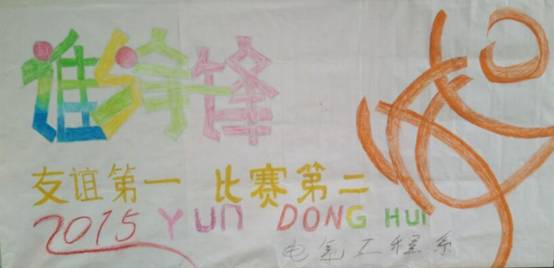 谁争锋
友谊第一 比赛第二
2015 YUN DONG HUI
电气工程系